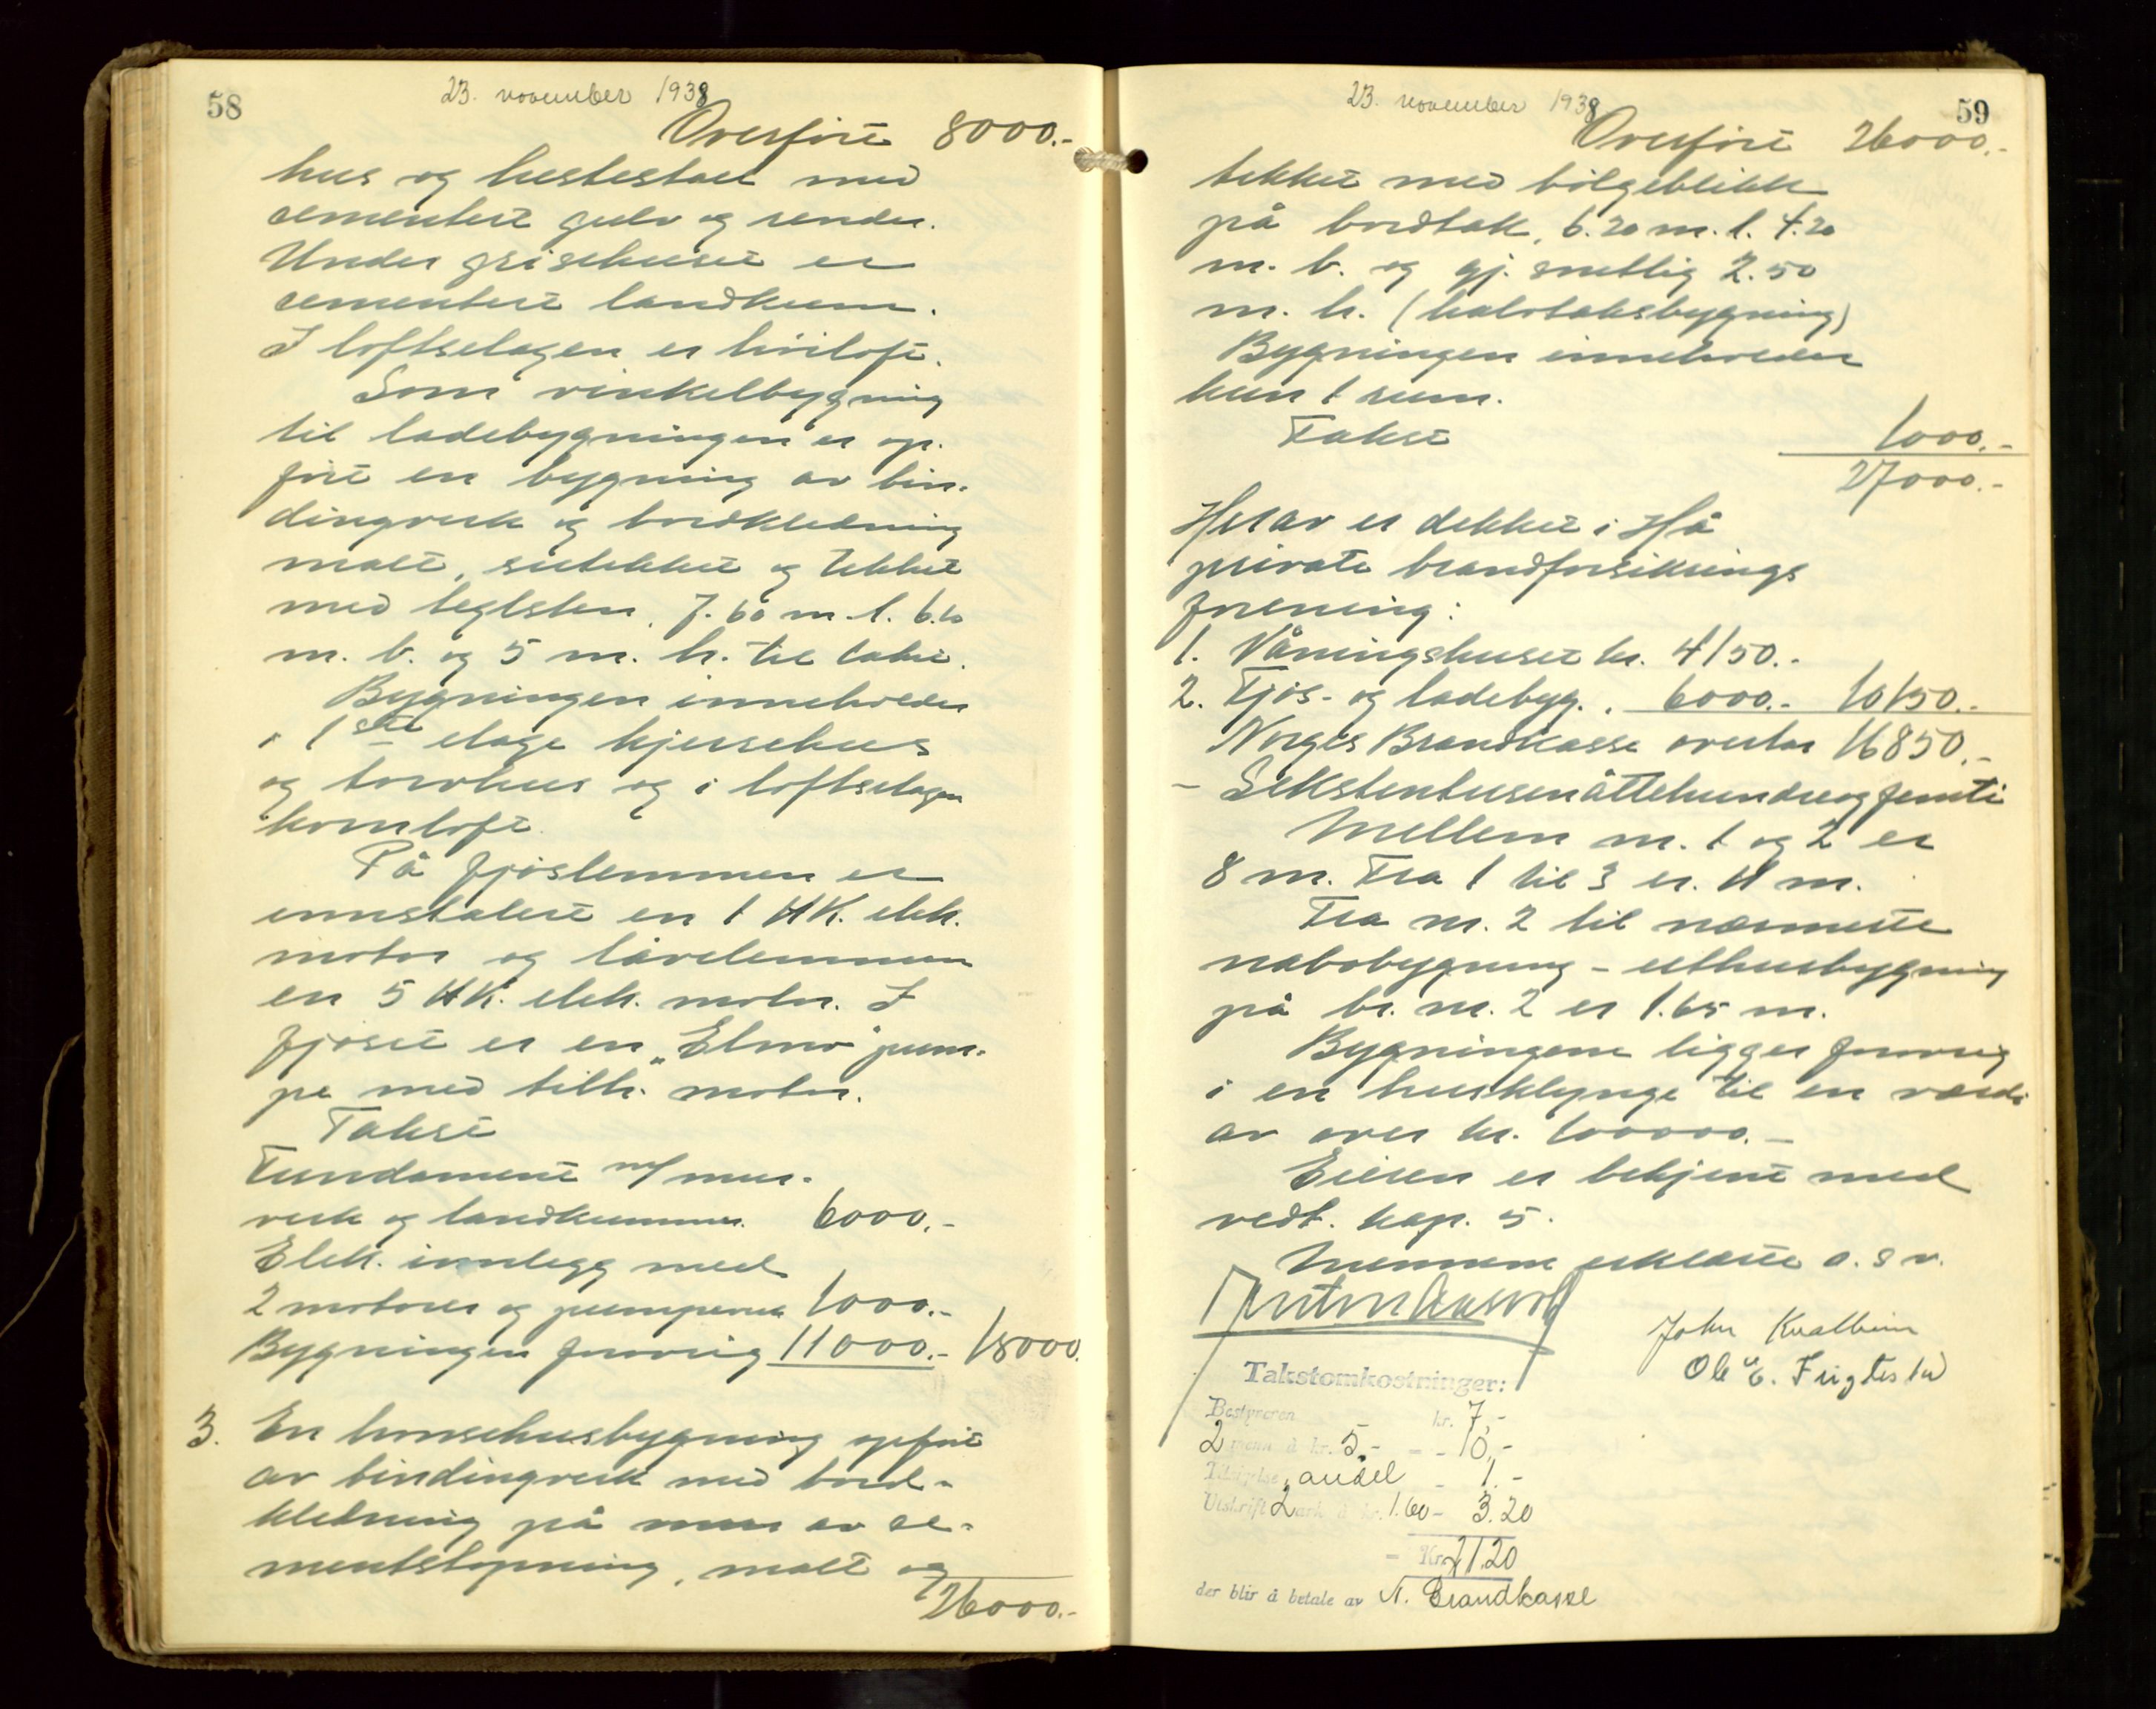 58
23. november 1938
Overført 8000.-
hus og hestestall med
sementert gulv og render.
Under grisehuset er
sementert landkum.
I loftsetagen er høiloft.
Som vinkelbygning
til ladebygningen er op-
ført en bygning av bin-
dingverk og bordkledning
malt, sutekket og tekket
med teglsten, 7.60 m. l. 6.10
m. b. og 5 m. h. til taket.
Bygningen inneholder
i 1ste etage kjerrehus
og torvhus og i loftsetagen
kornloft.
På fjøslemmen er
innstalert en 1 HK. elek.
motor og låvelemmen
en 5 HK. elek. motor. I
fjøset er en „Elmo" pum-
pe med tilh. motor.
Takst
Fundament m/ mur-
verk og landkummer 6000.-
Elek. innlegg med
2 motorer og pumperne 1000.-
Bygningen forøvrig 11000.- 18000.
3. En hønsehusbygning opført
av bindingverk med bord-
kledning på mur av se-
mentstøpning, malt og
26000.-
59
23. november 1938
Overført 26000.-
tekket med bølgeblikk
på bordtak, 6.20 m. l. 4.20
m. b. og gj. snittlig 2.50
m. h. (halvtaksbygning)
Bygningen inneholder
kun 1 rum.
Takst 1000.-
27000.-
Herav er dekket i Hå
private brandforsikrings
forening:
1. Våningshuset kr. 4150.-
2. Fjøs- og ladebyg. „ 6000.- 10150.-
Norges Brandkasse overtar 16850.-
- Sekstentusenåttehundreogfemti
Mellem nr. 1 og 2 er
8 m. Fra 1 til 3 er 11 m.
Fra nr. 2 til nærmeste
nabobygning - uthusbygning
på br. nr. 2 er 1.65 m.
Bygningene ligger forøvrig
i en husklynge til en verdi
av over kr. 100000.-
Eieren er bekjent med
vedt. kap. 5.
Mennene erklærte o. s. v.
John Kvalbein
Ole E. Fuglestad
Takstomkostninger:
Bestyreren kr. 7,-
2 menn à kr. 5,- - - 10,-
Tilsigelse, andel - 1.-
Utskrift 2 ark à kr. 1.60 - 3.20
= Kr. 21.20
der blir å betale av N. Brandkasse